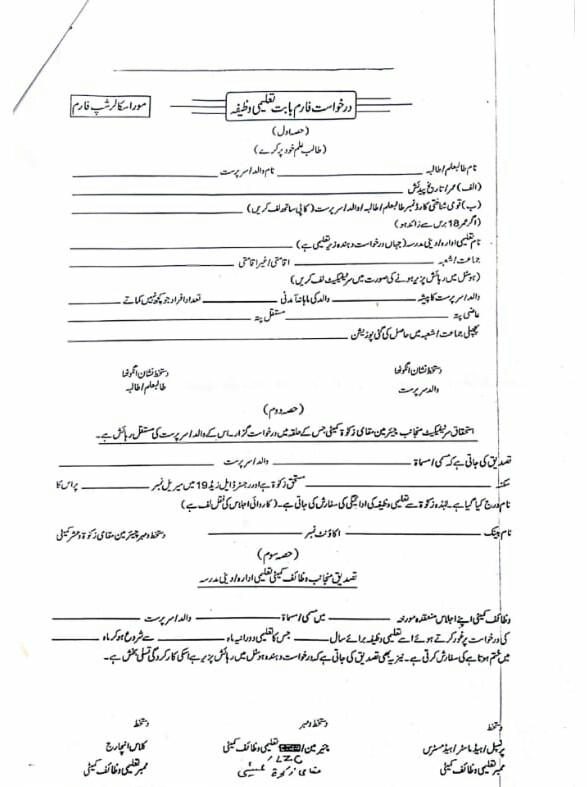 درخواست فارم بابت تعلیمی وظیفہ
مورا سکالرشپ فارم
(حصہ اول)
(طالب علم خود پر کرے)
نام طالبعلم / طالبہ ____ نام والد / سرپرست ____
(الف) عمر / تاریخ پیدائش ____
(ب) قومی شناختی کارڈ نمبر طالبعلم / طالبہ / والد / سرپرست (کاپی ساتھ لف کریں) ____
(اگر عمر 18 برس سے زائد ہو)
نام تعلیمی ادارہ / دینی مدرسہ (جہاں درخواست دہندہ زیر تعلیمی ہے) ____
جماعت / شعبہ ____ اقامتی / غیر اقامتی ____
(ہوسٹل میں رہائش پزیر ہونے کی صورت میں سرٹیفکیٹ لف کریں)
والد / سرپرست کا پیشہ ____ والد کی ماہانہ آمدنی ____ تعداد افراد جو کچھ نہیں کماتے ____
عارضی پتہ ____ مستقل پتہ ____
پچھلی جماعت / شعبہ میں حاصل کی گئی پوزیشن ____
دستخط نشان انگوٹھا دستخط نشان انگوٹھا
والد سرپرست طالبعلم / طالبہ
(حصہ دوم)
استحقاق سرٹیفکیٹ منجانب چیئرمین مقامی زکوٰۃ کمیٹی جس کے حلقہ میں درخواست گزار۔ اس کے والد / سرپرست کی مستقل رہائش ہے۔
تصدیق کی جاتی ہے کہ مسمی / مسماۃ ____ والد / سرپرست ____
سکنہ ____ مستحق زکوٰۃ ہے اور رجسٹر ڈ ایل زیڈ 19 میں سیریل نمبر ____ پر اس کا
نام درج کیا گیا ہے۔ لہٰذہ زکوٰۃ سے تعلیمی وظیفہ کی ادائیگی کی سفارش کی جاتی ہے۔ (کاروائی اجلاس کی نقل لف ہے)
نام بینک ____ اکاؤنٹ نمبر ____ دستخط و مہر چیئرمین مقامی زکوٰۃ و عشر کمیٹی
(حصہ سوم)
تصدیق منجانب وظائف کمیٹی تعلیمی ادارہ / دینی مدرسہ
وظائف کمیٹی اپنے اجلاس منعقدہ مورخہ ____ میں مسمی / مسماۃ ____ والد / سرپرست ____
کی درخواست پر غور کرتے ہوئے اسے تعلیمی وظیفہ برائے سال ____ جس کا تعلیمی دورانیہ ماہ ____ سے شروع ہو کر ماہ ____
میں ختم ہوتا ہے کی سفارش کرتی ہے۔ نیز یہ بھی تصدیق کی جاتی ہے کہ درخواست دہندہ ہوسٹل میں رہائش پزیر ہے اسکی کارکردگی تسلی بخش ہے۔
دستخط دستخط و مہر دستخط
پرنسپل / ہیڈ ماسٹر / ہیڈ مسٹرس چیئرمین / تعلیمی وظائف کمیٹی کلاس انچارج
ممبر تعلیمی وظائف کمیٹی LZC ممبر تعلیمی وظائف کمیٹی
مقامی زکوٰۃ کمیٹی